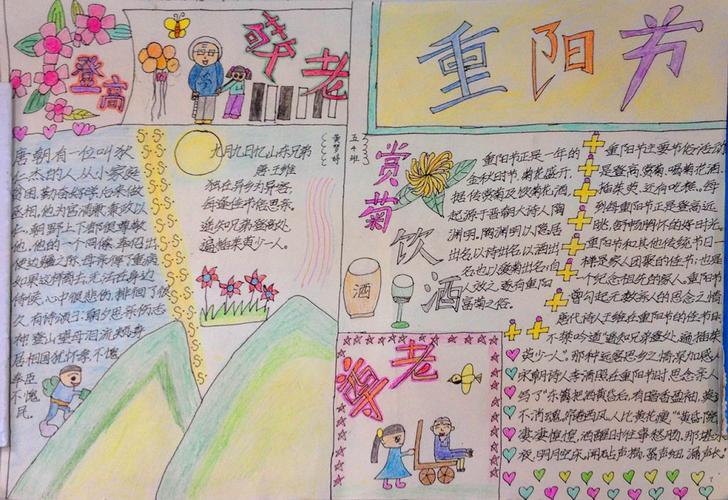 登高
敬老
重阳节
唐朝有一位叫狄
仁杰的人,从小家庭
贫困,勤奋好学后来做
丞相,他为官清廉
仁,朝野上下都很尊敬
他,他的一个同僚,奉诏出
使边疆之际,母亲得了重病
如果这样离去,无法在身边
侍候,心中很悲伤,
久,有诗颂于:朝夕思亲伤志
神,登山望母泪流频,身
居相国犹怀孝,不愧
奉臣
不愧
民。
九月九日忆山东兄弟
唐·王维
独在异乡为异客,
每逢佳节倍思亲。
遥知兄弟登高处,
遍插茱萸少一人。
五4班
赏菊
饮酒
重阳节正是一年的
金秋时节,菊花盛开,
据传赏菊及饮菊花酒,
起源于晋朝大诗人陶
渊明。陶渊明以隐居
出名,以诗出名,以酒出
名,也以爱菊出名;后
人效之,遂有重阳
赏菊之俗。
酒
尊老
重阳节主要节俗活动
是登高、赏菊、喝菊花酒、
插茱萸,还有吃糕。每
到每重阳节正是登高远
眺,舒畅胸怀的好时光。
重阳节和其他传统节日一
样是家人团聚的佳节;也是
一个纪念祖先的家人。重阳日
曾勾起无数亲人的思念之情
唐代诗人王维在重阳节的佳节日
不禁吟道"遥知兄弟登处,遍插茱
萸少一人"。那种远居思乡之情深加感人
宋朝诗人李清照在重阳节时思念亲人
吗了"东篱把酒黄昏后,有暗香盈袖,莫道
不消魂,帘卷西风,人比黄花瘦。"黄昏院